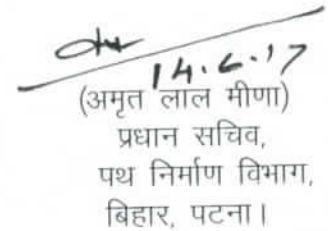 14.6.17
(अमृत लाल मीणा)
प्रधान सचिव,
पथ निर्माण विभाग,
बिहार, पटना।